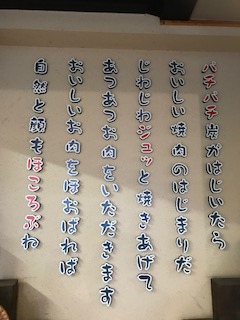 パチパチ炭がはじいたら
おいしい焼肉のはじまりだ
じわじわジュッと焼きあげて
あつあつお肉をいただきます
おいしいお肉をほおばれば
自然と顔もほころぶわ